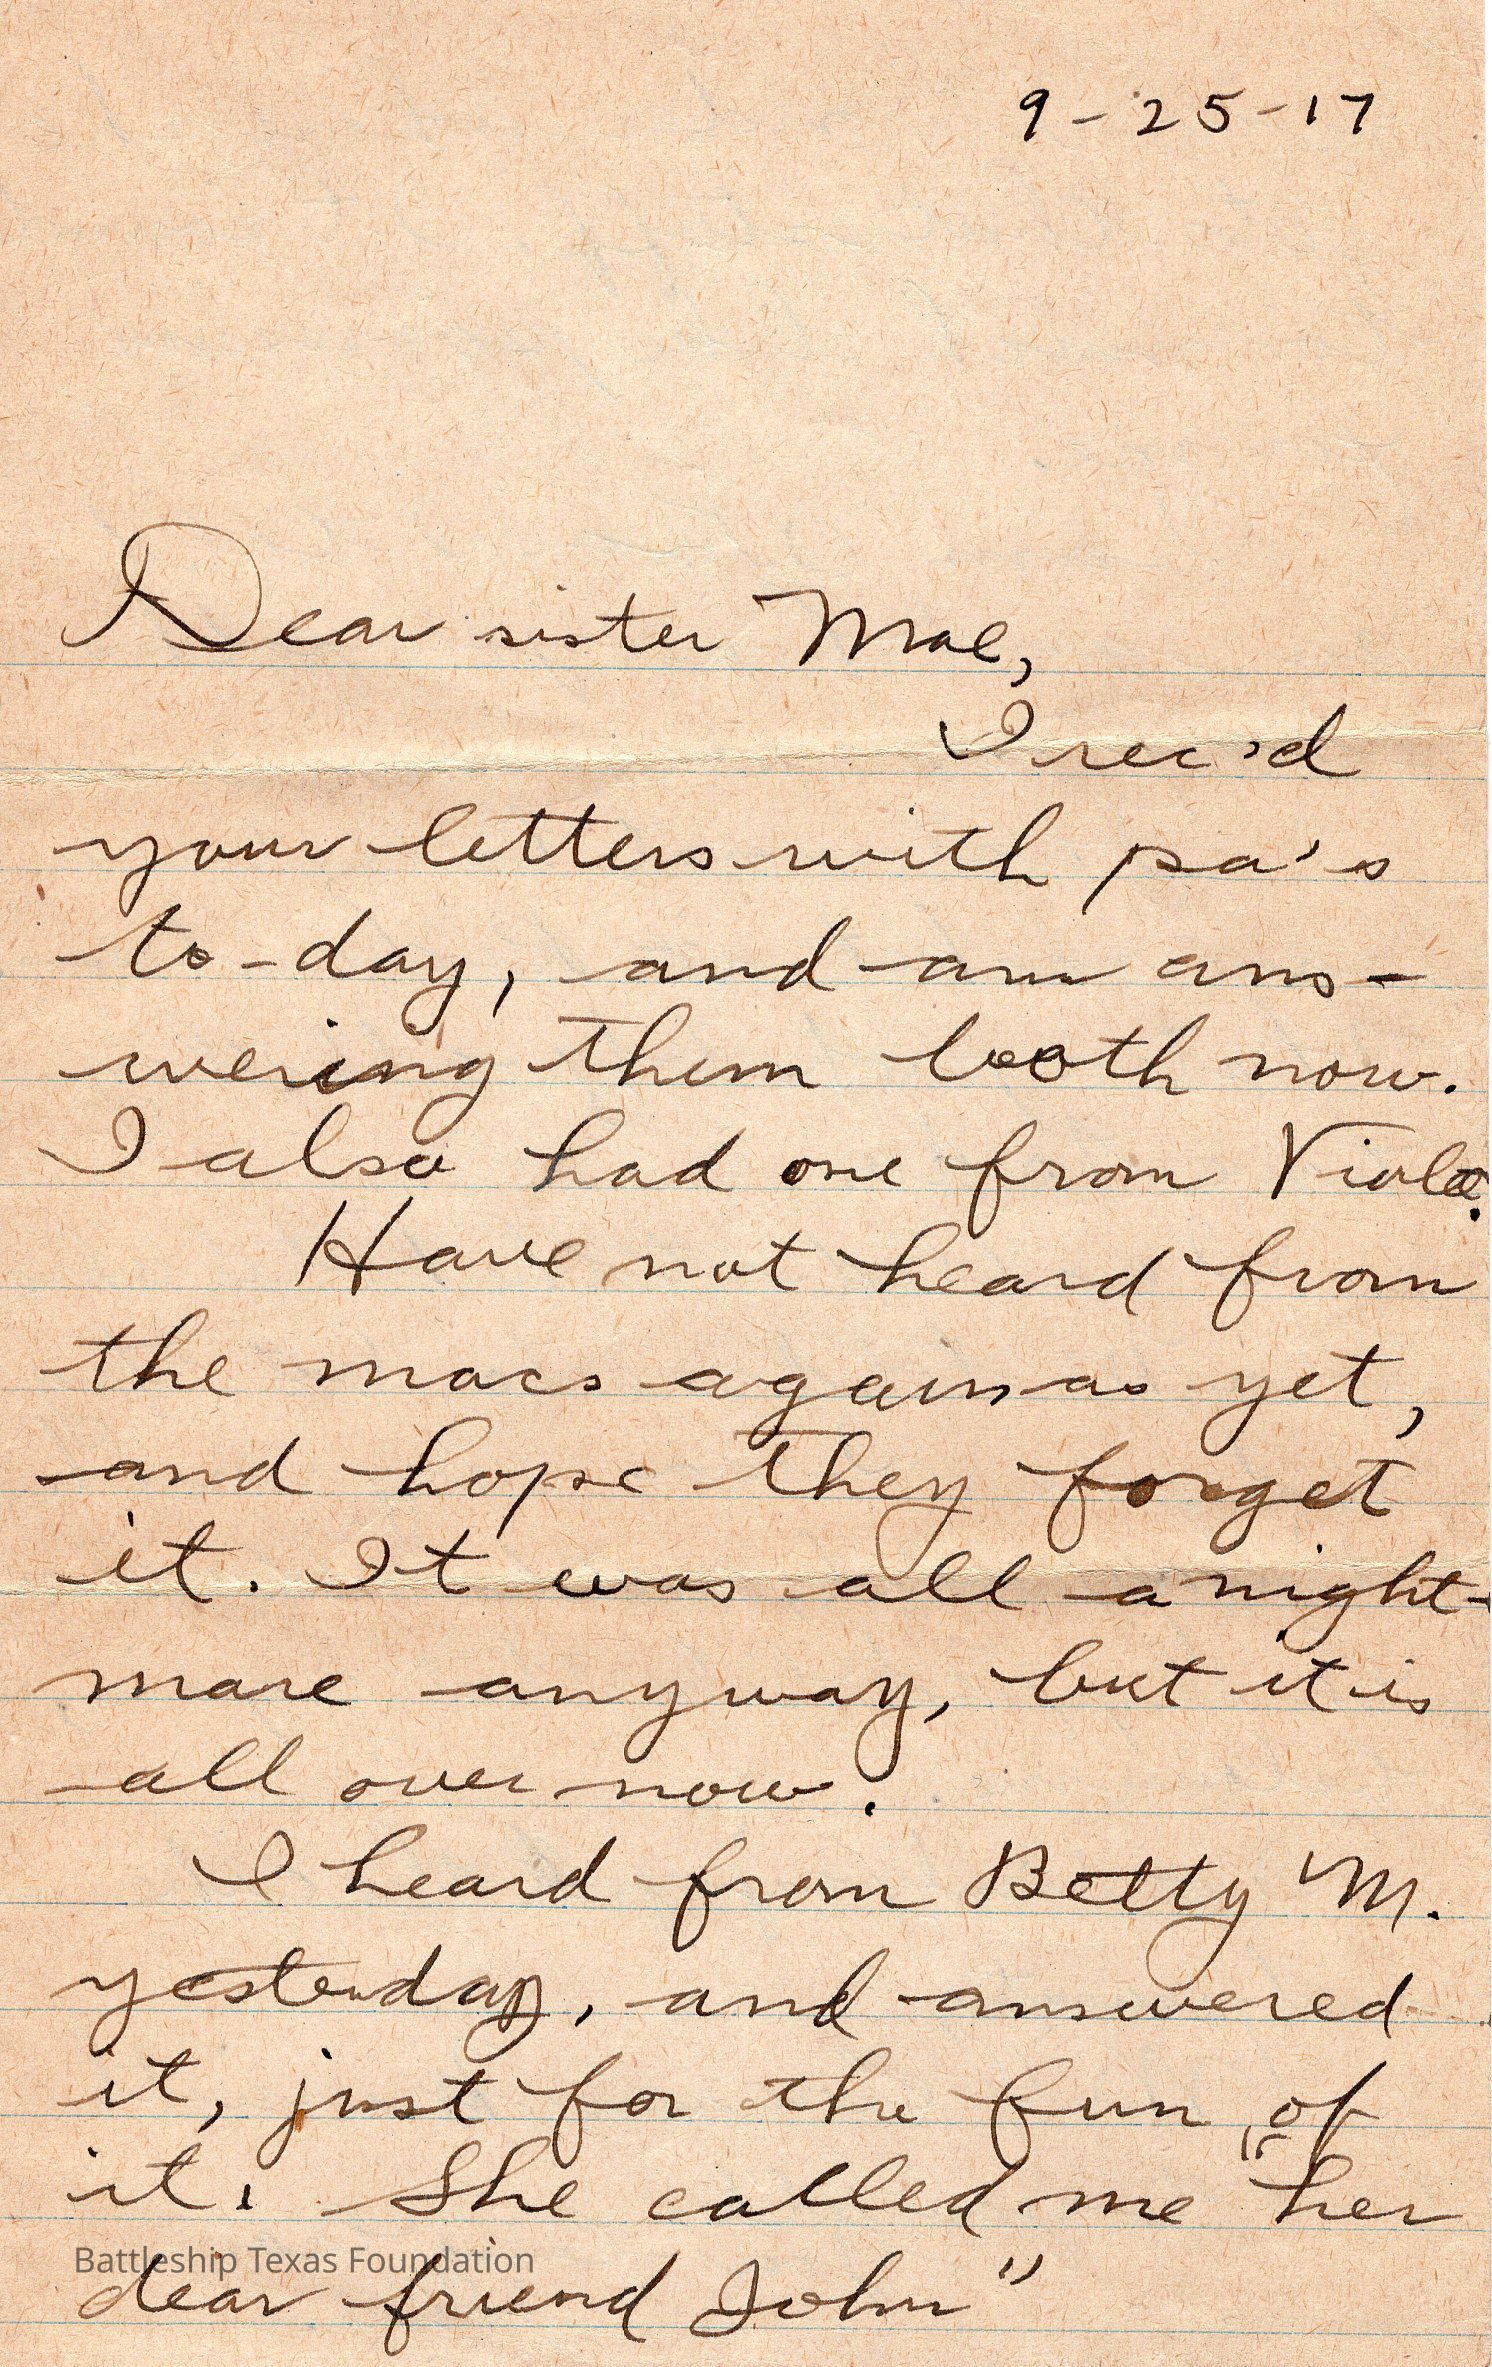 9-25-17
Dear sister Mae,
I rec'd
your letters with pa's
to-day, and am ans-
wering them both now.
I also had one from Viola.
Have not heard from
the macs again as yet,
and hope they forget
it. It was all a night-
mare anyway, but it is
all over now.
I heard from Betty M.
yesterday, and answered
it, just for the fun of
it. She called me "her
dear friend John"
Battleship Texas Foundation